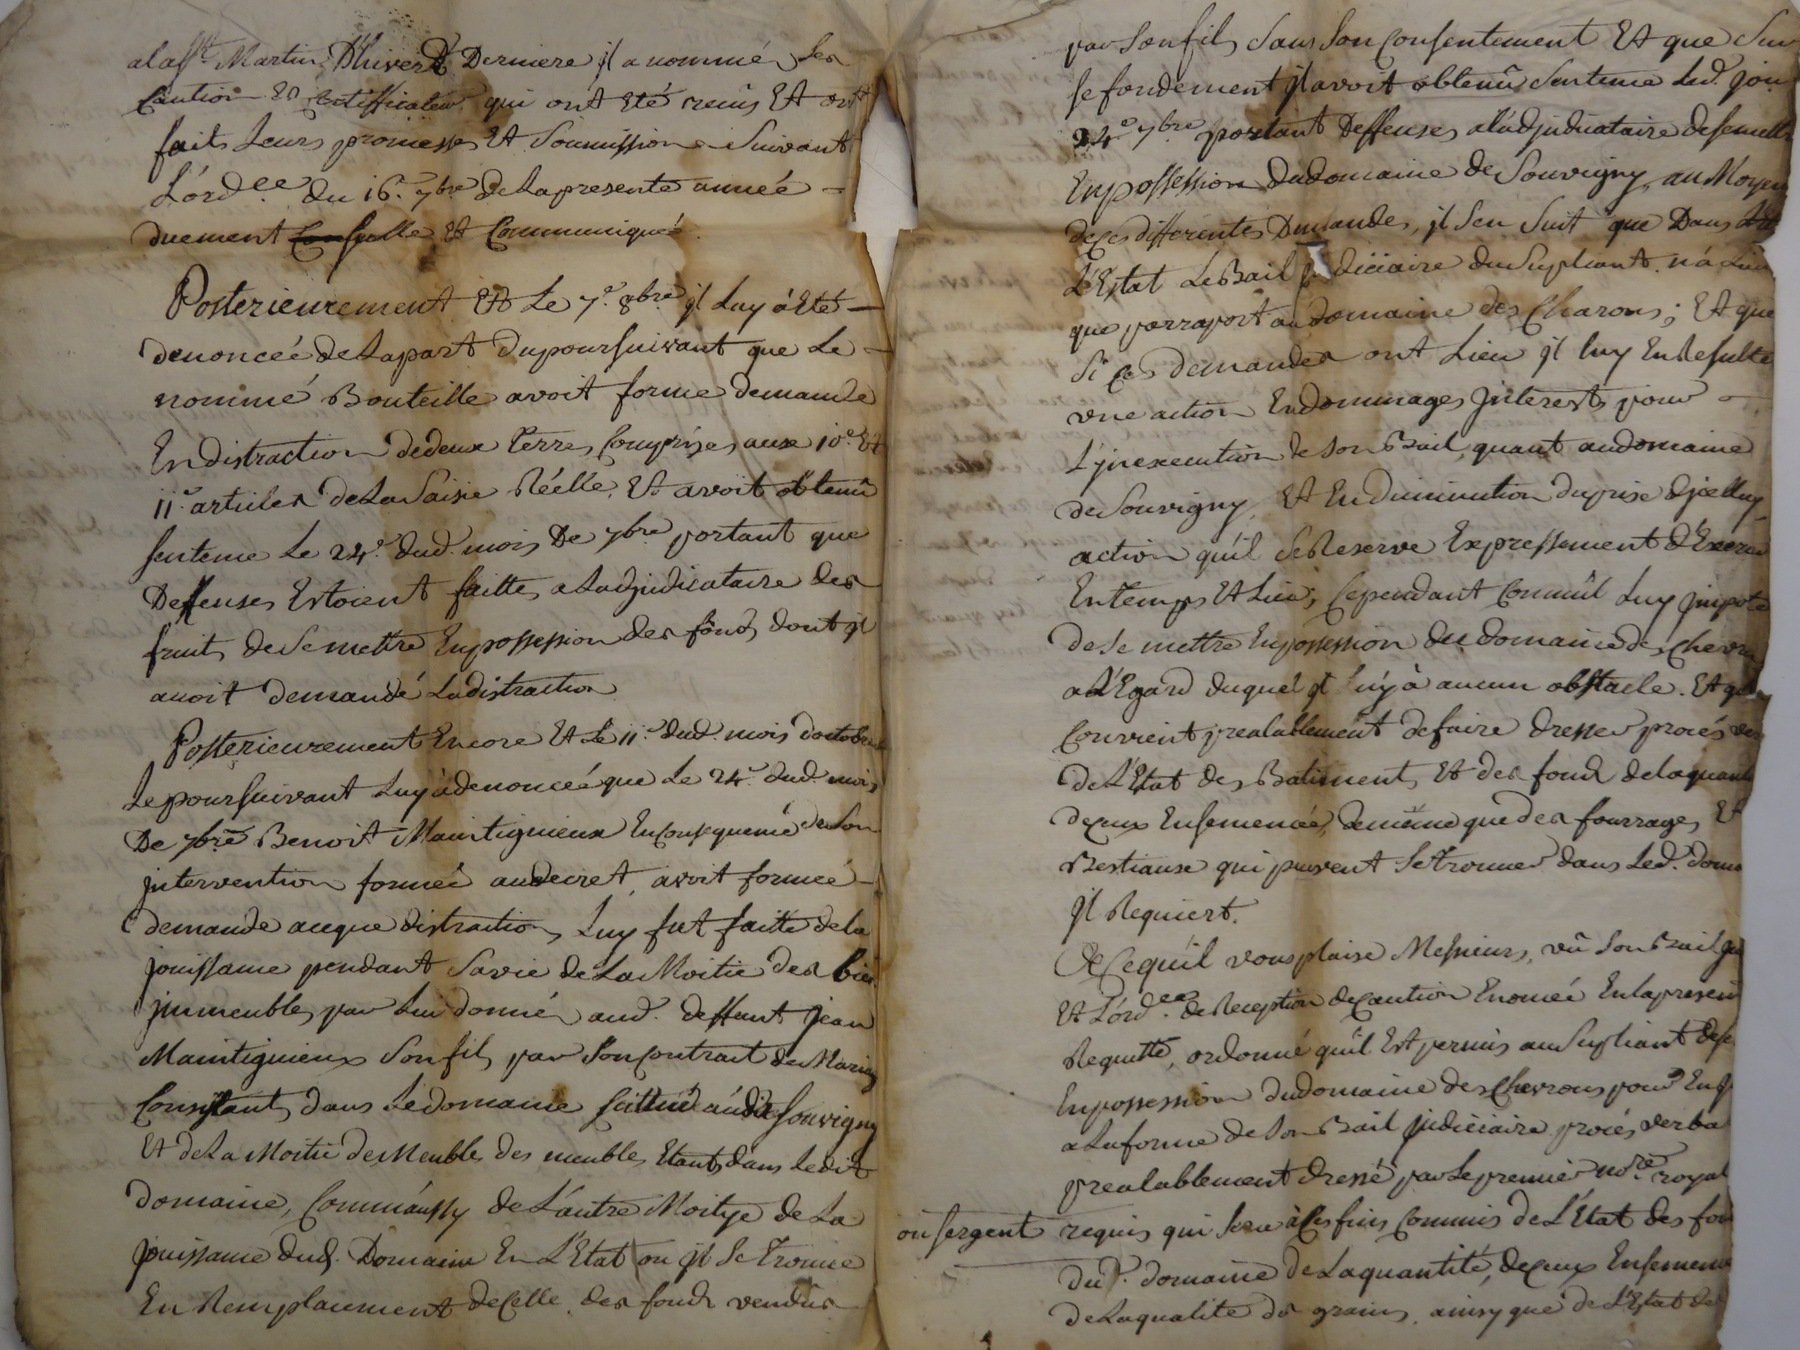 alaSt. Martin D'hivert Derniere jl a nommé Ses
Caution et Certifficateur qui ont Eté recûs Et ont
fait Leurs promesses Et Soumissions Suivant
L'ord.ce du 16.e 7bre De Lapresente année
duement Controllé Et Communiqué.
Posterieurement Et Le 7.e 8bre jl Luy à Eté
denoncéé deLapart Dupoursuivant que Le
nommé Bouteille avoit formé demande
En distraction dedeux terres Comprises aux 10.e Et
11.e articles deLa Saisie Réélle, Et avoit obtenu
sentence Le 24.e dud. mois De 7bre portant que
Deffenses Estoient faittes aLadjudicataire des
fruits deSemettre Enpossession des fonds dont jl
auoit demandé Ladistraction
Posterieurement Encore Et Le 11.e dud. mois doctobre
Lepoursuivant Luy à denoncéé que Le 24.e dud. mois
De 7bre Benoit Maintignieux En Consequence deSon
jntervention forméé audecret, avoit forméé
demande aceque distraction Luy fut faitte dela
jouissance pendant Savie de La Moitié des biens
jmmeubles par Lui donnés aud. deffunt jean
Maintignieux Son fils par Son Contrat de Mariage
Consistants dans Ledomaine scittué audit Souvigny
Et deLa Moitié des Meubles des meubles Etants dans Ledit
domaine, Comme aussy de L'autre Moitye de La
jouissance dud. Domaine En L'Etat ou jl Se Trouve
En Remplacement deCelle des fonds vendus
par Son fils Sans Son Consentement Et que Sur
Ce fondement jl avoit obtenu Sentence Led. jour
24.e 7bre portant Deffenses al'adjudicataire deSemettre
Enpossession dudomaine de Souvigny, au Moyen
deCes differentes Demandes, jl S'en Suit que Dans
L'Estat LeBail judiciaire du Supliant n'a Lieu
que parraport au domaine des Charons; Et que
Si Ces demandes ont Lieu jl luy En Resulte
une action En dommages jnterests pour
L'jnexecution de Son Bail, quant audomaine
de Souvigny, Et En diminution duprix d'jcelluy
action qu'il Se Reserve Expressement d'Exercer
En temps Et Lieu; Cependant Comm'il Luy jmporte
de Se mettre Enpossession du domaine des Chevrons
a L'Egard duquel jl n'y à aucun obstacle. Et qu'il
Convient prealablement defaire dresser procés ver
de L'Etat des Batiments Et des fonds delaquantité
deceux Ensemencés, demême que des fourrages Et
Bestiaux qui peuvent Se trouver dans Led. doma
jl Requiert.
à Cequ'il vous plaise Messieurs, vû Son Bail ju
Et L'ord.ce de Reception deCaution Enoncéé Enlapresente
Requette, ordonné qu'il Est permis au Supliant de Se
Enpossession dudomaine des Chevrons pour En j
aLaforme de Son Bail judiciaire, procés verbal
prealablement dressé par Lepremier no.re royal
ou sergent requis qui Sera àCes fins Commis de L'Etat des fon
dud. domaine deLaquantité, deceux Ensemencé
deLaqualité des grains, ainsy que de L'Etat des